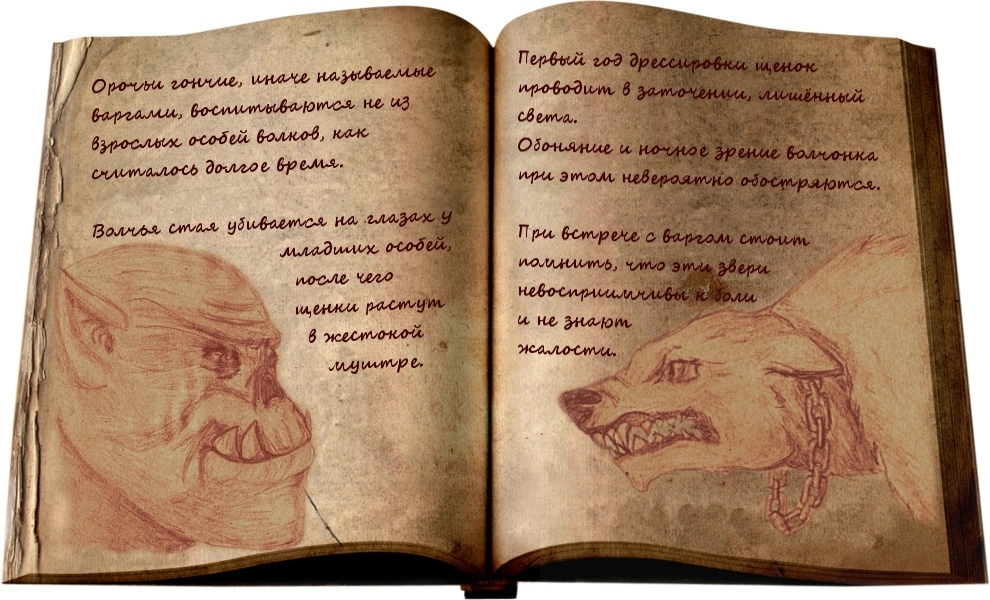 Орочьи гончие, иначе называемые
варгами, воспитываются не из
взрослых особей волков, как
считалось долгое время.
Волчья стая убивается на глазах у
младших особей,
после чего
щенки растут
в жестокой
муштре.
Первый год дрессировки щенок
проводит в заточении, лишённый
света.
Обоняние и ночное зрение волчонка
при этом невероятно обостряются.
При встрече с варгом стоит
помнить, что эти звери
невосприимчивы к боли
и не знают
жалости.